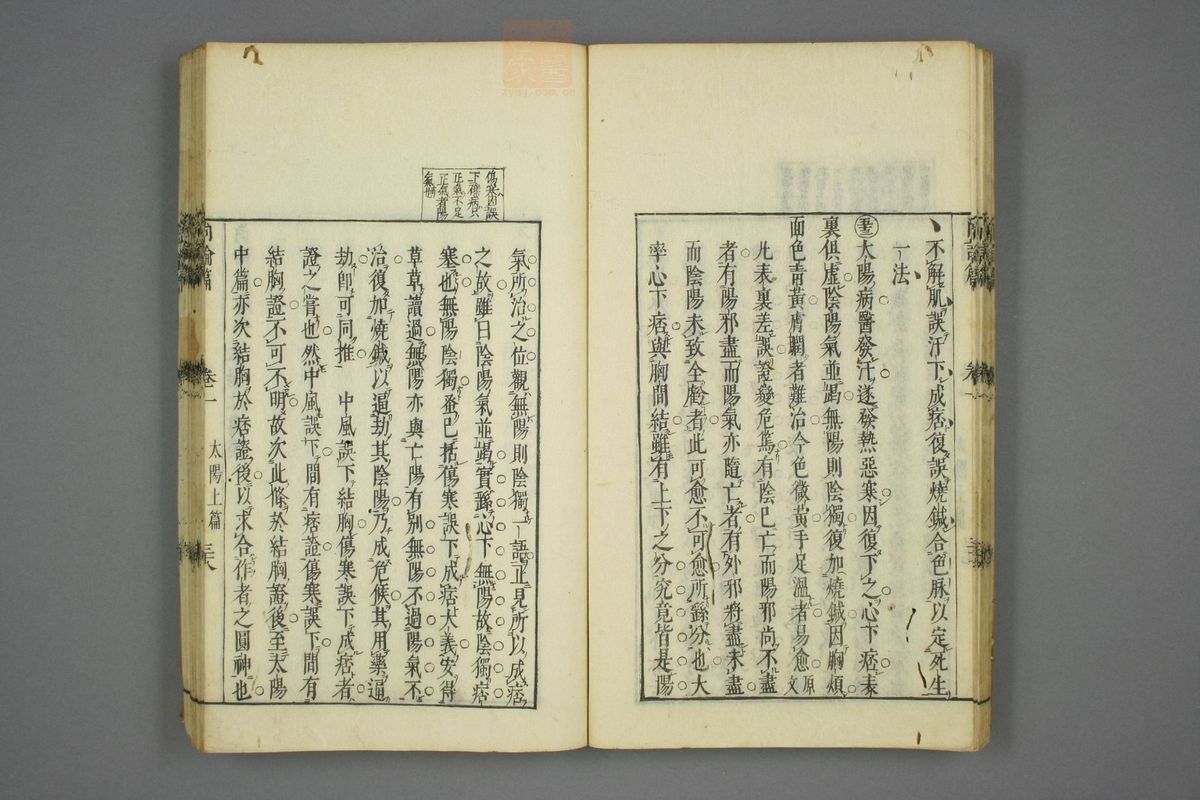 不解肌誤汗下成痞復誤燒鍼合色脉以定死生
一法
太陽病醫發汗遂發熱惡寒因復下之心下痞表
裏俱虛陰陽氣並竭無陽則陰獨復加燒鍼因胸煩
面色青黃膚瞤者難治今色微黃手足溫者易愈原文
凡表裏差誤證變危篤有陰已亡而陽邪尚不盡
者有陽邪盡而陽氣亦隨亡者有外邪將盡未盡
而陰陽未致全虧者此可愈不可愈所繇分也大
率心下痞與胸間結雖有上下之分究竟皆是陽
尚論篇
卷一
太陽上篇
傷寒因誤
下補痞只
正氣不足
正氣者陽
氣所治之位觀無陽則陰獨一語正見所以成痞
之故雖曰陰陽氣並竭實繇心下無陽故陰獨痞
塞也無陽陰獨蚤已括傷寒誤下成痞大義安得
草草讀過無陽亦與亡陽有别無陽不過陽氣不
治復加燒鍼以逼劫其陰陽乃成危候其用藥逼
劫卽可同推 中風誤下結胸傷寒誤下成痞者
證之嘗也然中風誤下間有痞證傷寒誤下間有
結胸證不可不明故次此條於結胸證後至太陽
中篇亦次結胸於痞證後以求合作者之圓神也